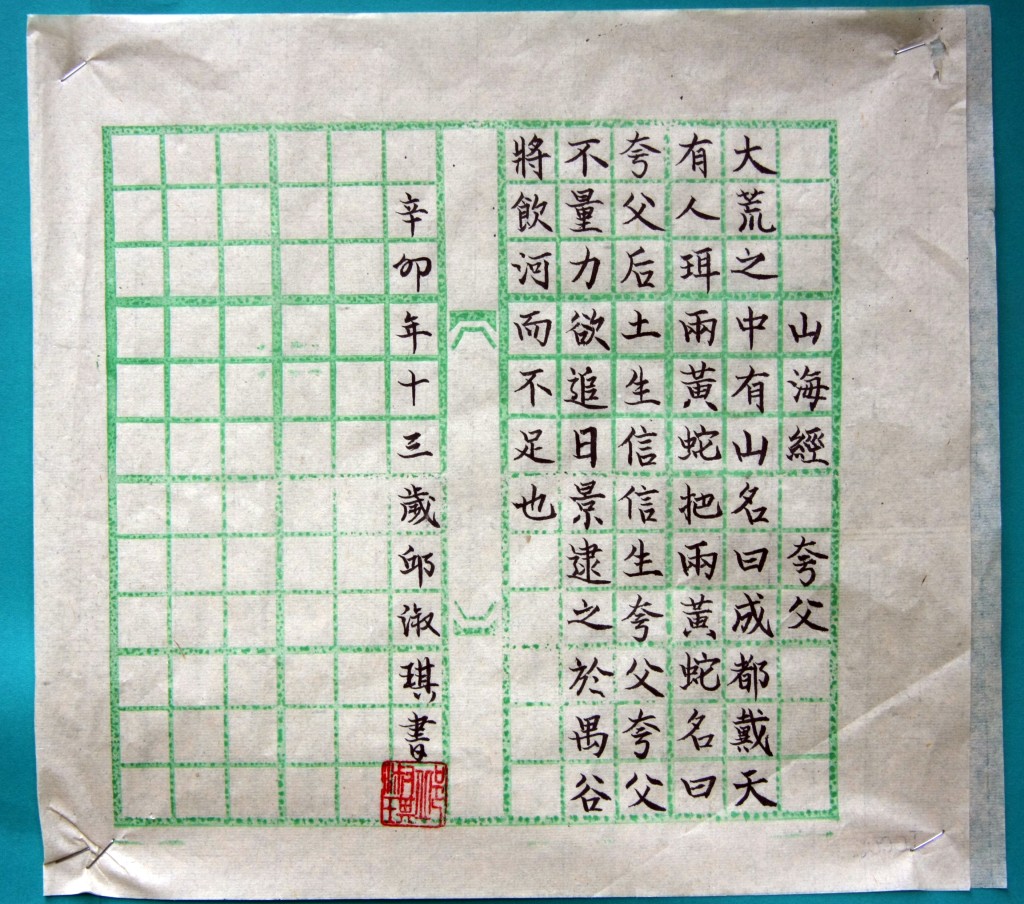 山海經 夸父
大荒之中有山名曰成都戴天
有人珥兩黃蛇把兩黃蛇名曰
夸父后土生信信生夸父夸父
不量力欲追日景逮之於禺谷
將飲河而不足也
辛卯年十三歲邱淑琪書
邱淑琪